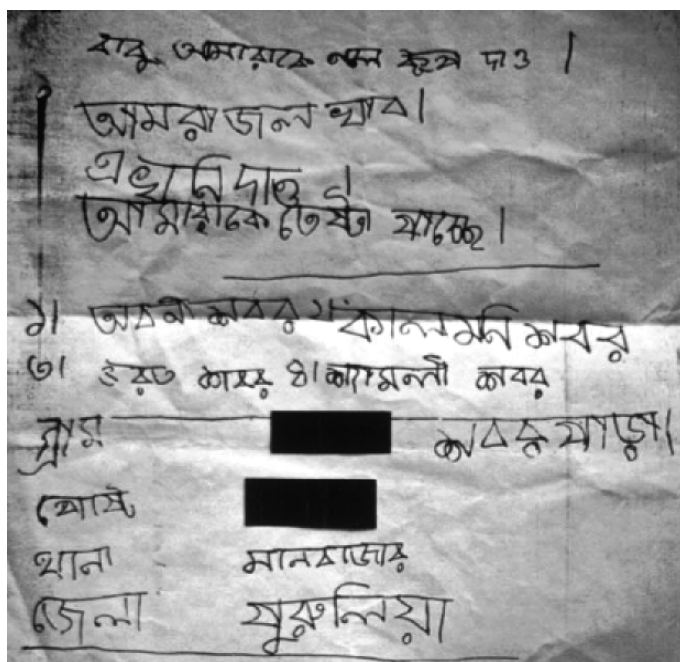 বাবু আমারাকে নল কূপ দাও ।
আমরা জল খাব।
এখুনি দাও ।
আমারাকে তেষ্টা যাচ্ছে।
১। অবনী শবর ২। কালমনি শবর
৩। ভরত শবর ৪। শ্যামলী শবর
গ্রাম শবর পাড়া।
পোষ্ট
থানা মানবাজার
জেলা পুরুলিয়া